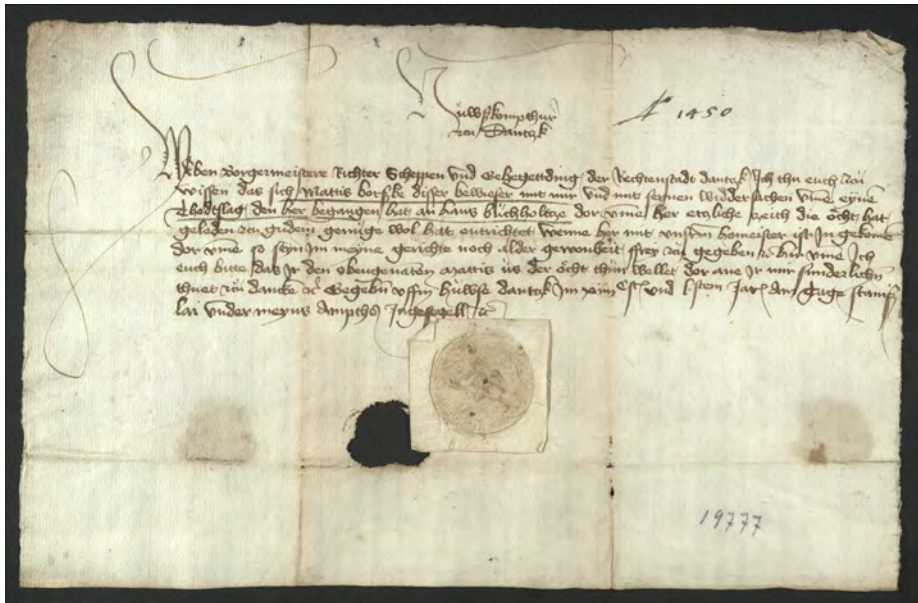 Huwskompthur
von Dantzk
1450
Leben Borgermeistere Richter Scheppen und der Rechtenstadt dantzk Ich thu euch zcu
wissen das sich Mattis disser bewieser mit mir und mit seynen widdersachen vmme eyne
thodtslag den her begangen hat an hans buchholtze dor vmme her etzliche zceith die ocht hat
geleden zcu gudem genuge wol hat entrichtet wenne her mit unserm homeister ist In gekomen
dor vmme so seyn Im meyne gerichte noch alder gewonheit ffrey zcu gegeben hir vmme Ich
euch bitte das Ir den obengenaten Mattis us der ocht thun wellet dor ane Ir mir sunderlichn
thuet zcu dancke Gegebn uffm huwse dantzk Im und Jare Am tage stanis
lai under meyns Ampths Ingesegell
19777